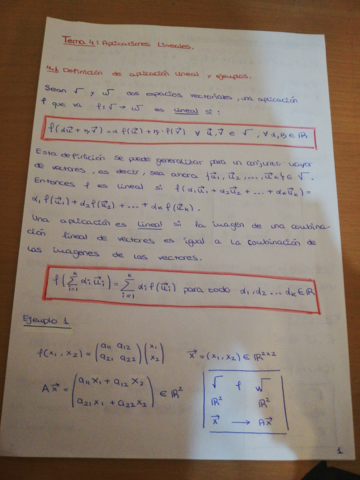 Tema 4: Aplicaciones Lineales.
4.1 Definición de aplicación lineal y ejemplos.
Sean V y W dos espacios vectoriales, una aplicación
f que va f: V → W es lineal si:
f(αu⃗ + βv⃗) = α f(u⃗) + β · f(v⃗) ∀ u⃗, v⃗ ∈ V, ∀ α, β ∈ ℝ
Esta definición se puede generalizar para un conjunto mayor
de vectores, es decir, sea ahora {u⃗₁, u⃗₂, ..., u⃗ₙ} ∈ V.
Entonces f es lineal si f(α₁u⃗₁ + α₂u⃗₂ + ... + αₙu⃗ₙ) =
α₁f(u⃗₁) + α₂f(u⃗₂) + ... + αₙf(u⃗ₙ).
Una aplicación es lineal si la imagen de una combina-
ción lineal de vectores es igual a la combinación de
las imágenes de los vectores.
f(∑ⁿᵢ₌₁ αᵢu⃗ᵢ) = ∑ⁿᵢ₌₁ αᵢf(u⃗ᵢ) para todo α₁, α₂ ... αₙ ∈ ℝ
Ejemplo 1
f(x₁, x₂) = (a₁₁ a₁₂ / a₂₁ a₂₂)(x₁ / x₂) x⃗ = (x₁, x₂) ∈ ℝ²ˣ²
Ax⃗ = (a₁₁x₁ + a₁₂x₂ / a₂₁x₁ + a₂₂x₂) ∈ ℝ²
V f W
ℝ² ℝ²
x⃗ → Ax⃗
1